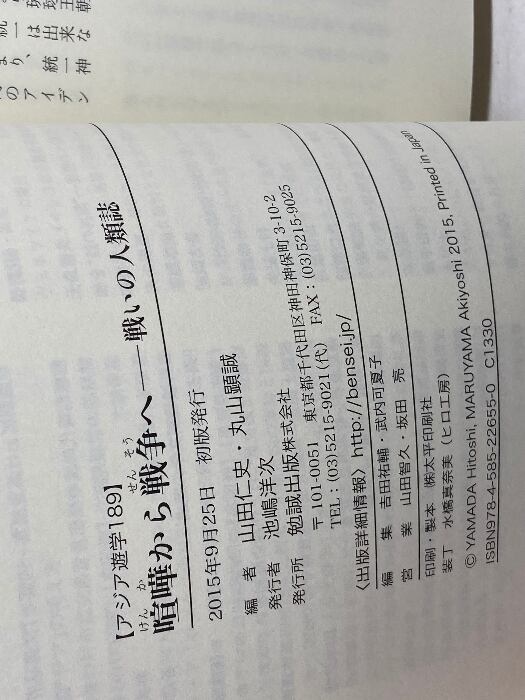 【アジア遊学189】
喧嘩から戦争へ──戦いの人類誌
けん か
せん そう
2015年9月25日 初版発行
編 者 山田仁史・丸山顕誠
発行者 池嶋洋次
発行所 勉誠出版株式会社
〒101-0051 東京都千代田区神田神保町3-10-2
TEL：(03)5215-9021(代) FAX：(03)5215-9025
〈出版詳細情報〉http://bensei.jp/
編 集 吉田祐輔・武内可夏子
営 業 山田智久・坂田 亮
印刷・製本 ㈱太平印刷社
装丁 水橋真奈美（ヒロ工房）
© YAMADA Hitoshi, MARUYAMA Akiyoshi 2015, Printed in Japan
ISBN978-4-585-22655-0 C1330
は出来な
り、統一神
のアイデン